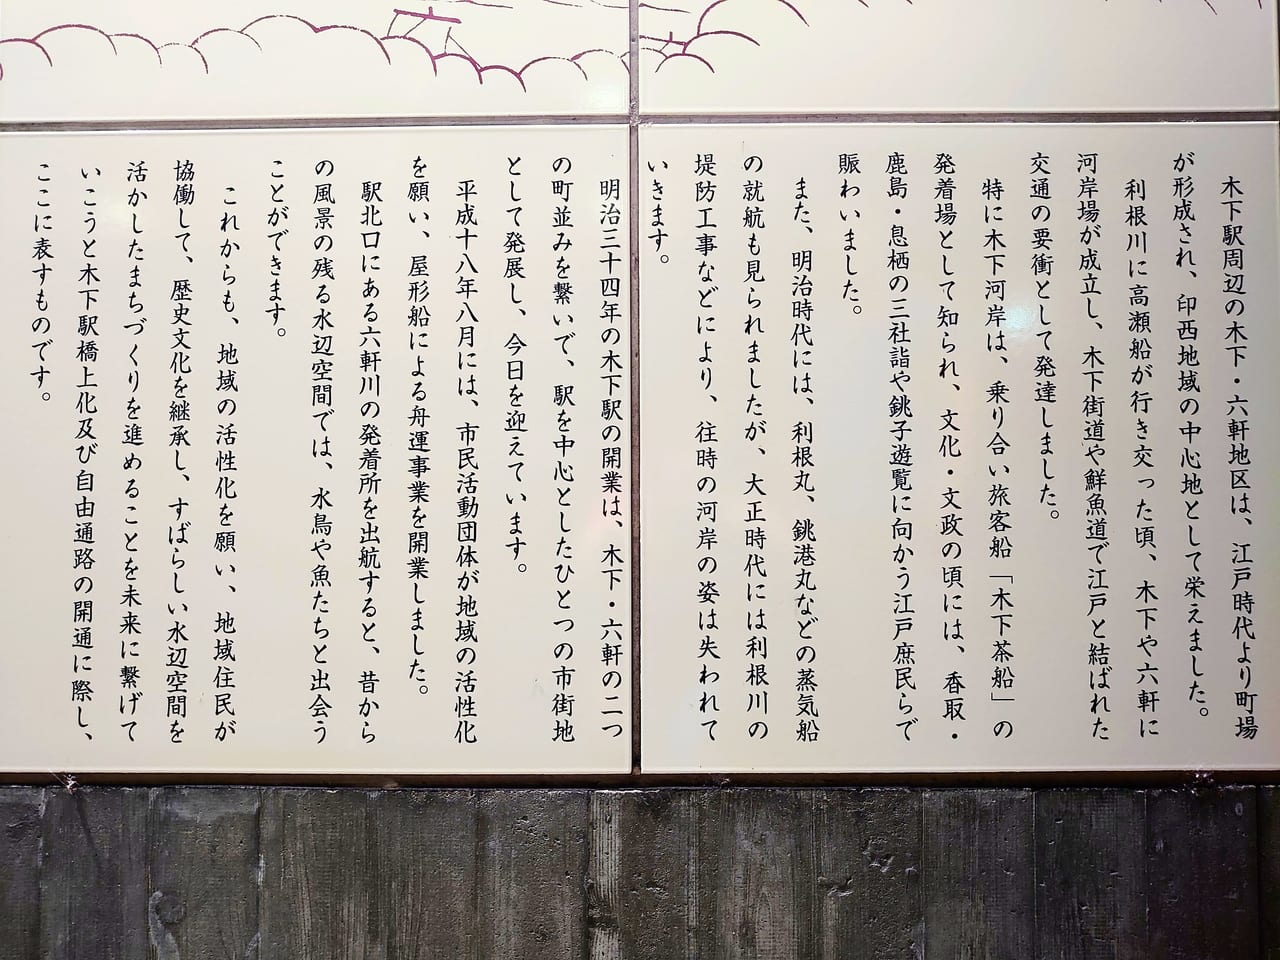 木下駅周辺の木下・六軒地区は、江戸時代より町場
が形成され、印西地域の中心地として栄えました。
利根川に高瀬船が行き交った頃、木下や六軒に
河岸場が成立し、木下街道や鮮魚道で江戸と結ばれた
交通の要衝として発達しました。
特に木下河岸は、乗り合い旅客船「木下茶船」の
発着場として知られ、文化・文政の頃には、香取・
鹿島・息栖の三社詣や銚子遊覧に向かう江戸庶民らで
賑わいました。
また、明治時代には、利根丸、銚港丸などの蒸気船
の就航も見られましたが、大正時代には利根川の
堤防工事などにより、往時の河岸の姿は失われて
いきます。
明治三十四年の木下駅の開業は、木下・六軒の二つ
の町並みを繋いで、駅を中心としたひとつの市街地
として発展し、今日を迎えています。
平成十八年八月には、市民活動団体が地域の活性化
を願い、屋形船による舟運事業を開業しました。
駅北口にある六軒川の発着所を出航すると、昔から
の風景の残る水辺空間では、水鳥や魚たちと出会う
ことができます。
これからも、地域の活性化を願い、地域住民が
協働して、歴史文化を継承し、すばらしい水辺空間を
活かしたまちづくりを進めることを未来に繋げて
いこうと木下駅橋上化及び自由通路の開通に際し、
ここに表すものです。